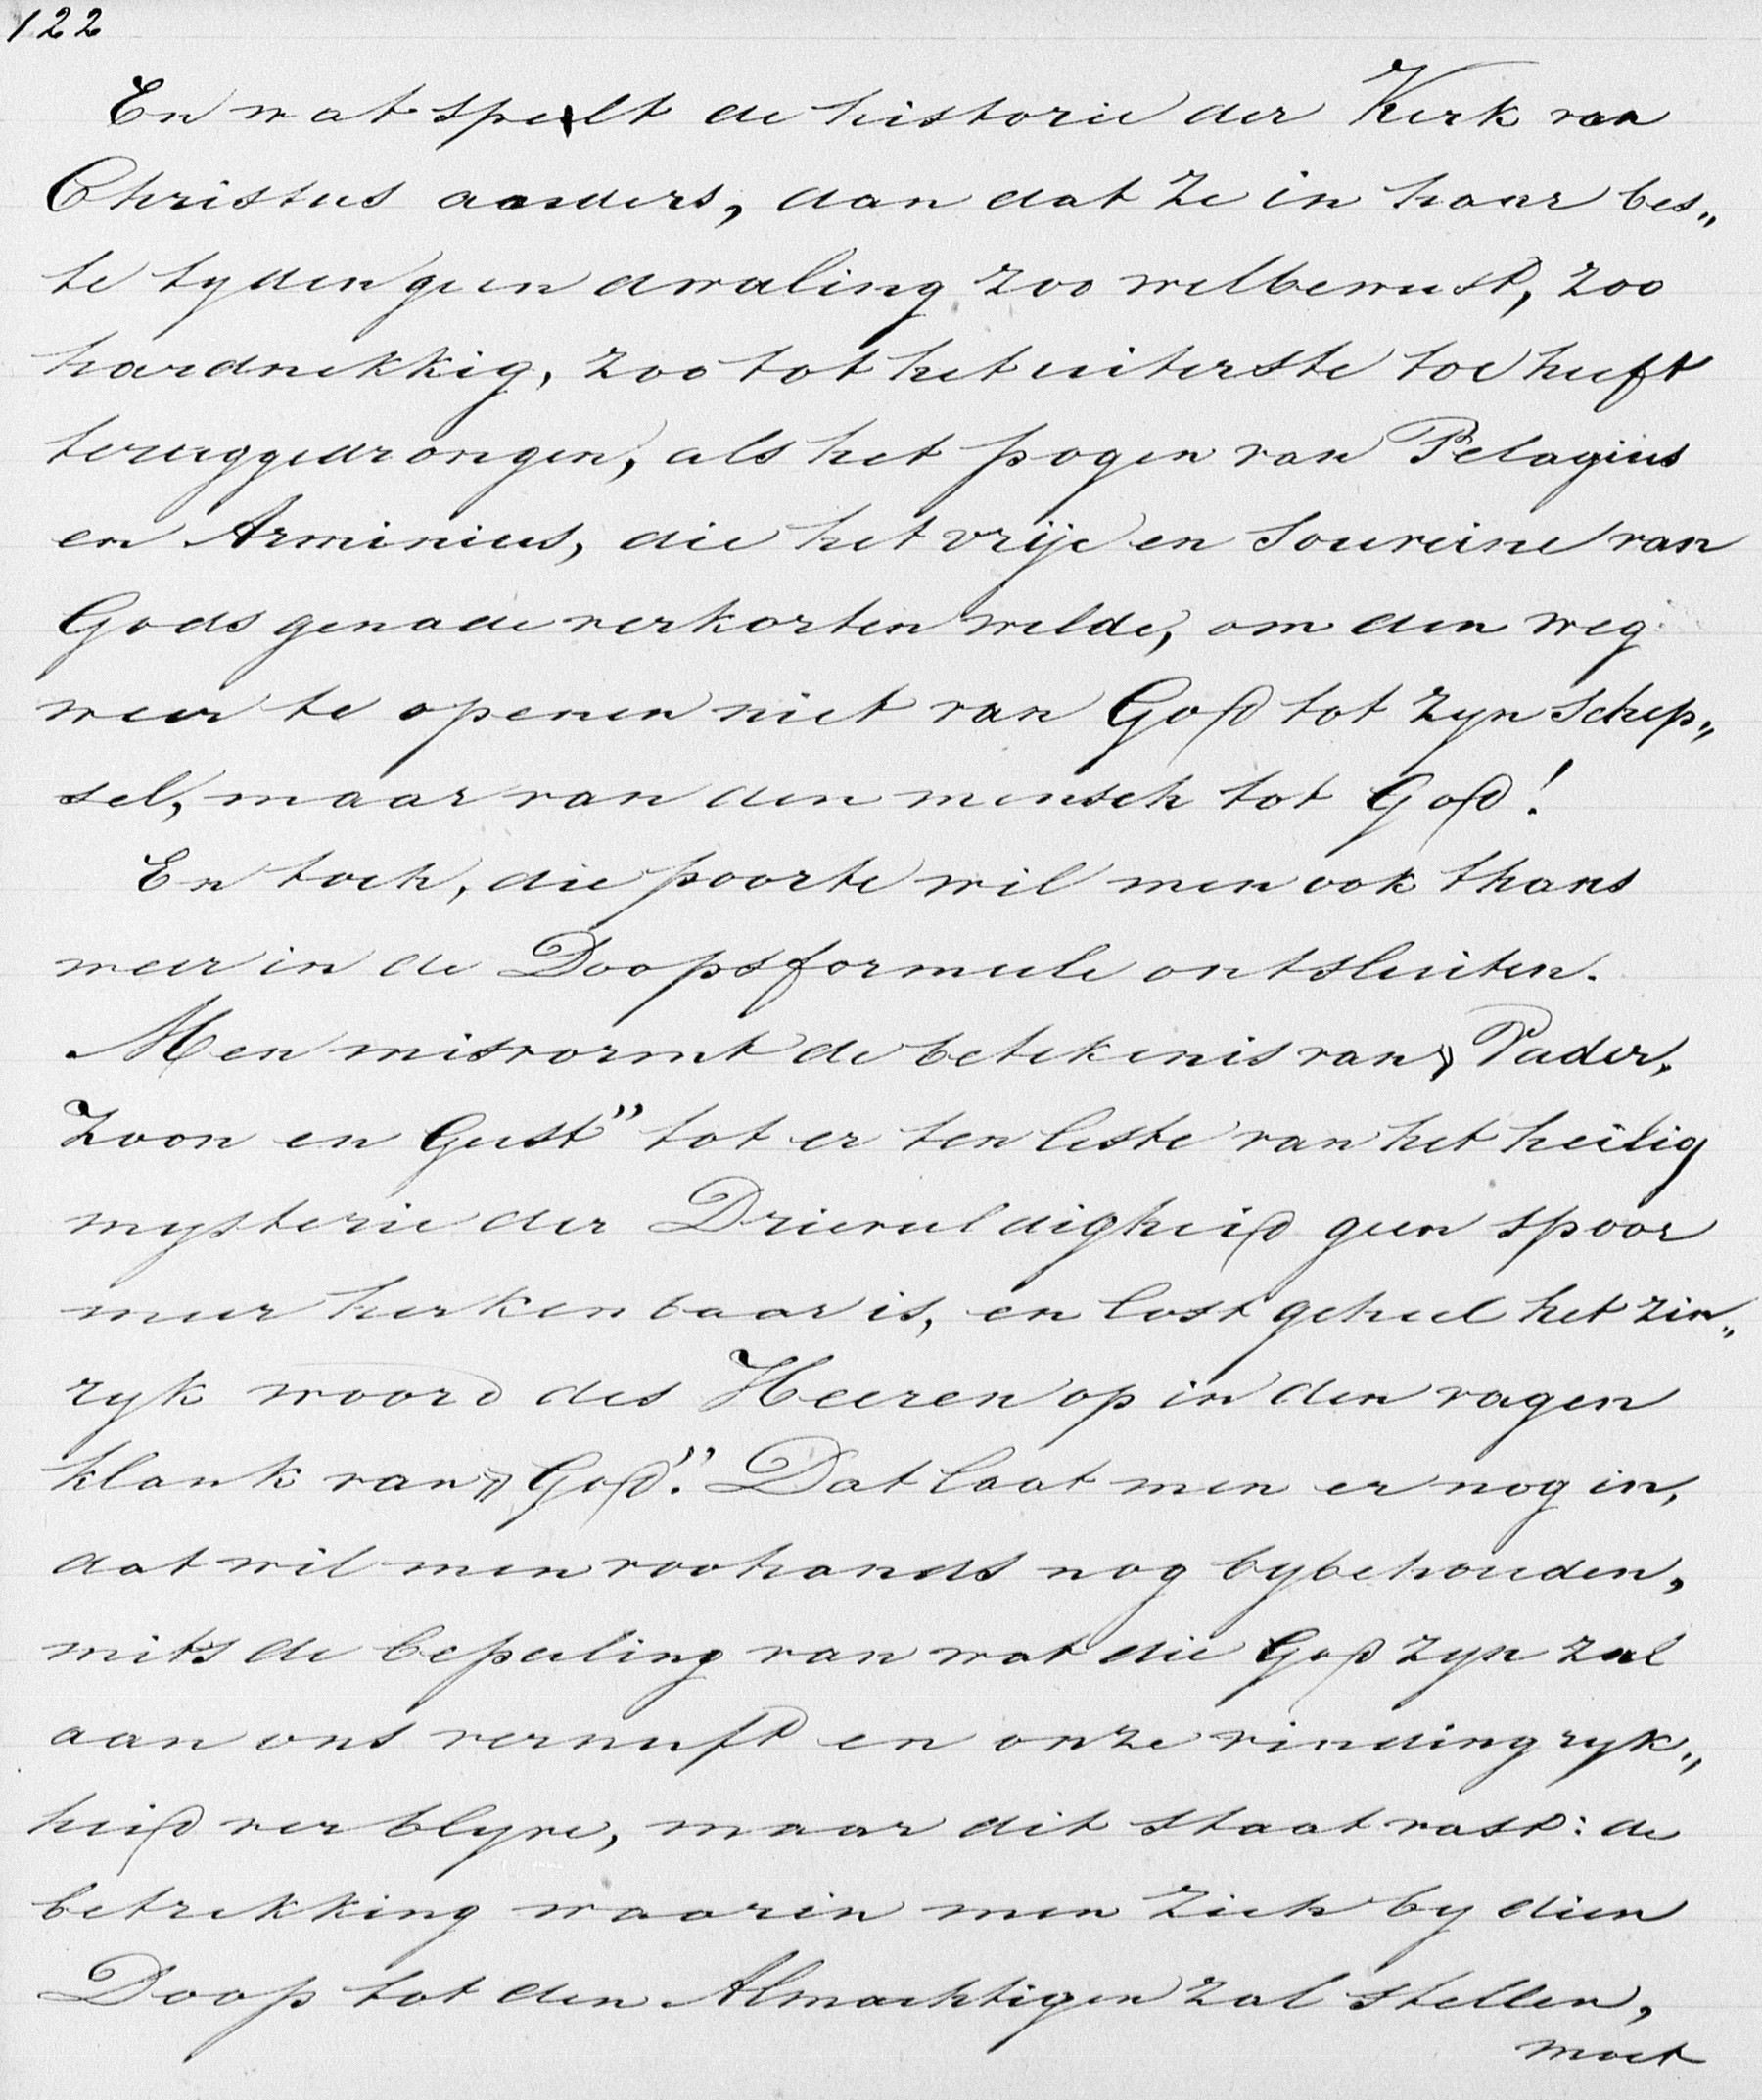 122
En wat spelt de historie der Kerk van
Christus aanders, dan dat ze in haar bes„
te tyden geen dwaling zoo welbewust, zoo
hardnekkig, zoo tot het uiterste toe heeft
teruggedrongen, als het pogen van Pelagius
en Arminius, die het vrije en souvereine van
Gods genade verkorten wilde, om den weg
weer te openen niet van God tot zyn schep„
sel, maar van den mensch tot God!
En toch, die poorte wil men ook thans
weer in de Doopsformule ontsluiten.
Men misvormt de betekenis van „Vader,
Zoon en Geest” tot er ten leste van het heilig
mysterie der Drievuldigheid geen spoor
meer herkenbaar is, en lost geheel het zin„
ryk woord des Heeren op in den vagen
klank van „God”. Dat laat men er nog in,
dat wil men voohands nog bybehouden,
mits de bepeeling van wat die God zyn zal
aan ons vernuft en onze vindingryk„
heid verblyve, maar dit staat vast: de
betrekking waarin men zich by dien
Doop tot den Almachtigen zal stellen,
moet